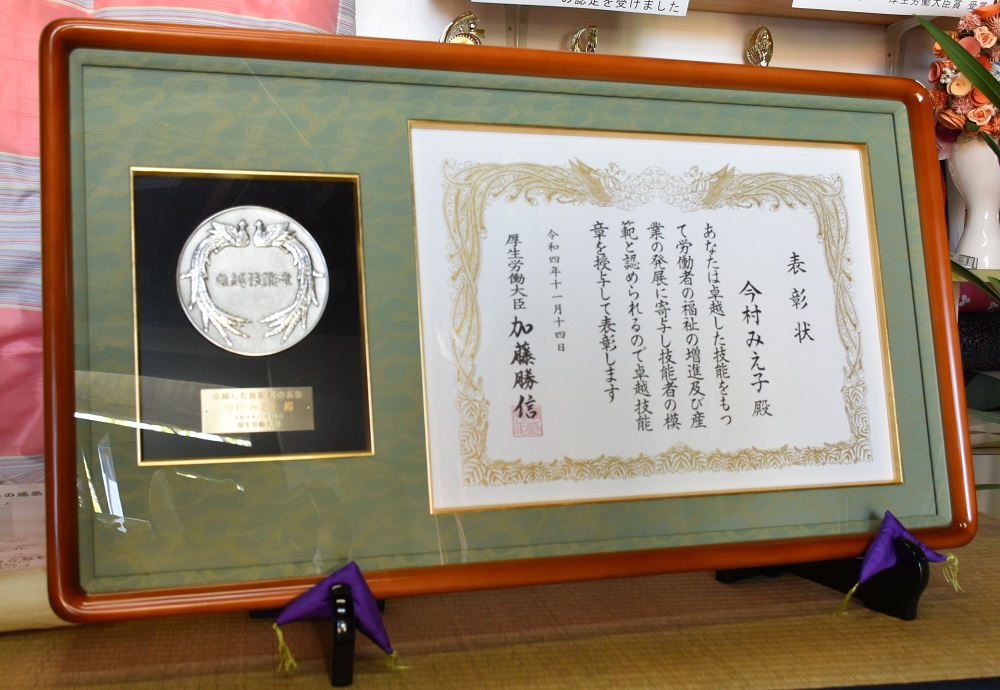 の認定を受けました
厚生労働大臣賞 受賞
表彰状
今村みえ子殿
あなたは卓越した技能をもっ
て労働者の福祉の増進及び産
業の発展に寄与し技能者の模
範と認められるので卓越技能
章を授与して表彰します
令和四年十一月十四日
厚生労働大臣 加藤勝信
卓越技能章
卓越した技能者の表彰
今村みえ子 殿
厚生労働大臣
の逸品